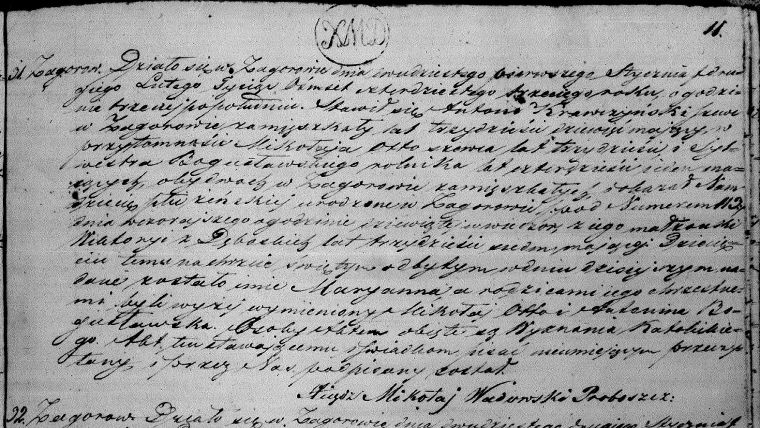 XMD
11.
31. Zagorow. Działo się w Zagorowie dnia dwudziestego pierwszego Stycznia /drugiego
Lutego/ Tysiąc Ośmset czterdziestego trzeciego roku, o godzinie
trzeciej po południu. Stawił się Antoni Krawczyński szewc
w Zagorowie zamieszkały lat trzydzieści dziewięć mający, w
przytomności Mikołaja Otto szewca lat trzydzieści i Sylwestra
Bogusławskiego rolnika lat czterdzieści jeden mających,
obydwóch w Zagorowie zamieszkałych, i okazał Nam
Dziecię płci żeńskiej urodzone w Zagorowie pod Numerem 113
dnia wczorajszego o godzinie dziewiątej w wieczor, z jego małżonki
Wiktoryi z Dębskich lat trzydzieści siedm mającej. Dziecięciu
temu na chrzcie świętym odbytym w dniu dzisiejszym nadane
zostało imie Maryanna, a rodzicami jego chrzestnemi
byli wyżej wymieniony Mikołaj Otto i Antonina Bogusławska.
Osoby Aktem objęte są Wyznania Katolickiego.
Akt ten stawającemu i świadkom, pisać nieumiejącym przeczytany
i przez Nas podpisany został.
Xiądz Mikołaj Wadowski Proboszcz.
32. Zagorow. Działo się w Zagorowie dnia dwudziestego drugiego Stycznia